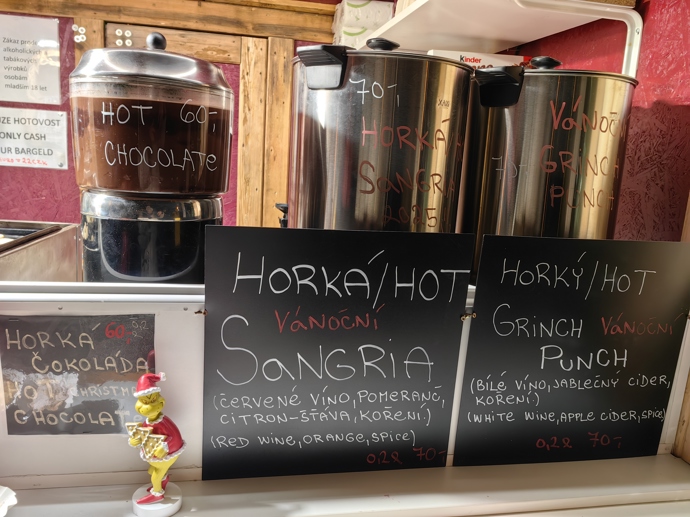 Zákaz prodeje
alkoholických
tabákových
výrobků
osobám
mladším 18 let
UZE HOTOVOST
ONLY CASH
UR BARGELD
HOT 60,-
CHOCOLATE
70,-
HORKÁ
SANGRI
VÁNOČ
70,-
GRINCH
PUNC
kinder
HORKÁ 60,- 0,2
ČOKOLÁDA
HOT CHRISTM
CHOCOLAT
HORKÁ/HOT
VÁNOČNÍ
SANGRIA
(ČERVENÉ VÍNO, POMERANČ,
CITRON-ŠŤÁVA, KOŘENÍ.)
(RED WINE, ORANGE, SPICE)
0,2l 70,-
HORKÝ/HOT
GRINCH VÁNOČNÍ
PUNCH
(BÍLÉ VÍNO, JABLEČNÝ CIDER,
KOŘENÍ.)
(WHITE WINE, APPLE CIDER, SPICE)
0,2l 70,-